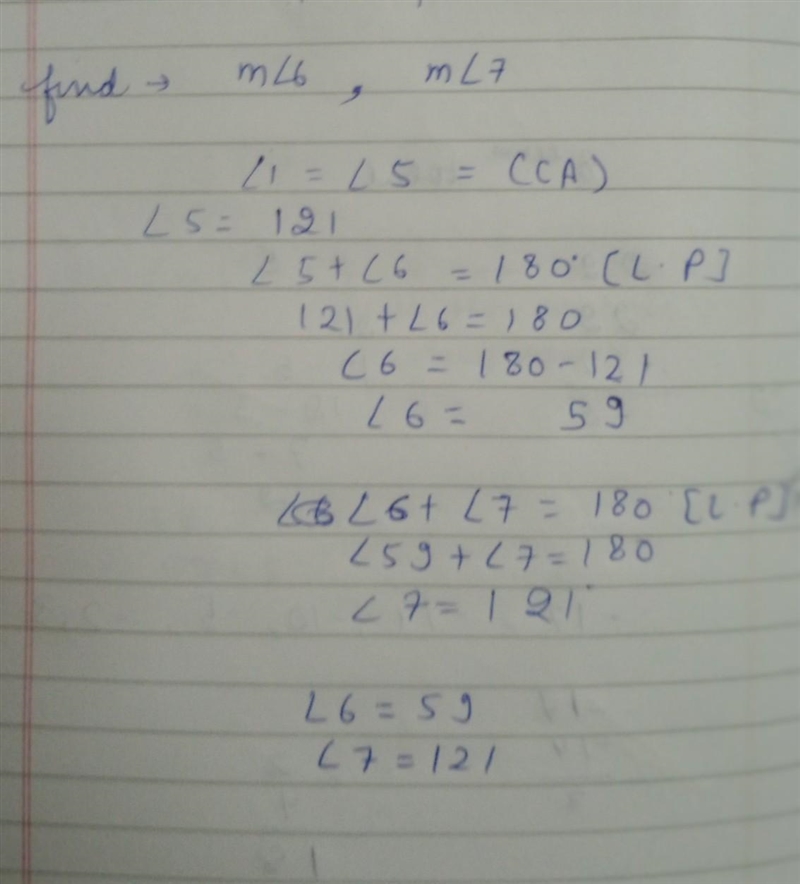 find → m∠6 , m∠7
∠1 = ∠5 = (CA)
∠5 = 121
∠5 + ∠6 = 180° [L.P]
121 + ∠6 = 180
∠6 = 180 - 121
∠6 = 59
∠6 + ∠7 = 180 [L.P]
∠59 + ∠7 = 180
∠7 = 121
∠6 = 59
∠7 = 121